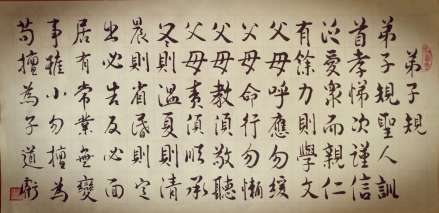 弟子規
弟子規聖人訓
首孝悌次謹信
泛愛衆而親仁
有餘力則學文
父母呼應勿緩
父母命行勿懶
父母教須敬聽
父母責須順承
冬則溫夏則清
晨則省昏則定
出必告反必面
居有常業無變
事雖小勿擅為
苟擅為子道虧